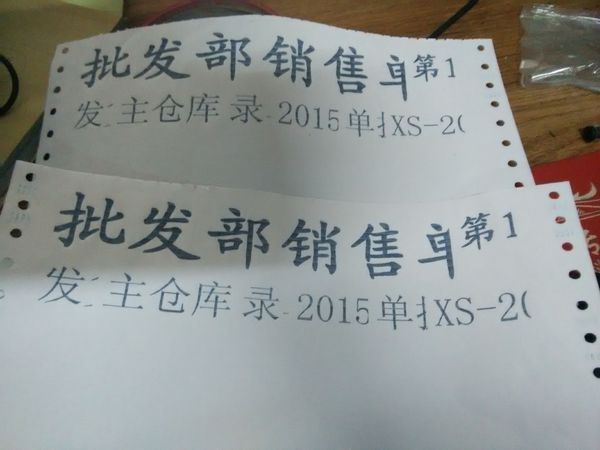 批发部销售单 第1
发 主仓库 录 2015 单 XS-2
批发部销售单 第1
发 主仓库 录 2015 单 XS-2